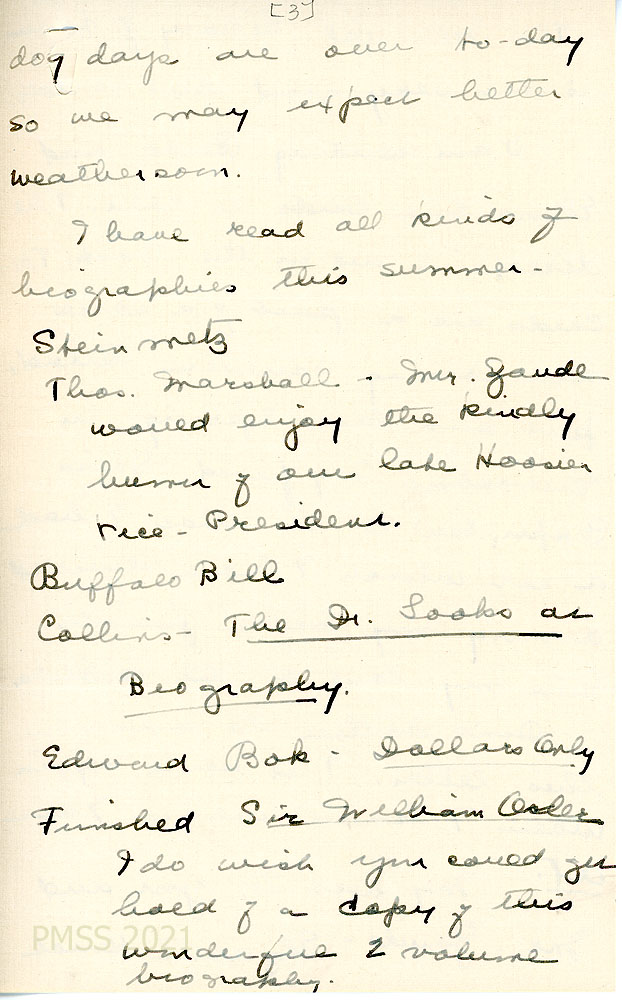 [3]
dog days are over to-day
so we may expect better
weather soon.
I have read all kinds of
biographies this summer -
Steinmetz
Thos. Marshall - Mr. Zande
would enjoy the kindly
humor of our late Hoosier
Vice-President.
Buffalo Bill
Collins - The Dr. Looks at
Biography.
Edward Bok - Dollars Only
Finished Sir William Osler
I do wish you could get
hold of a copy of this
wonderful 2 volume
biography.
PMSS 2021